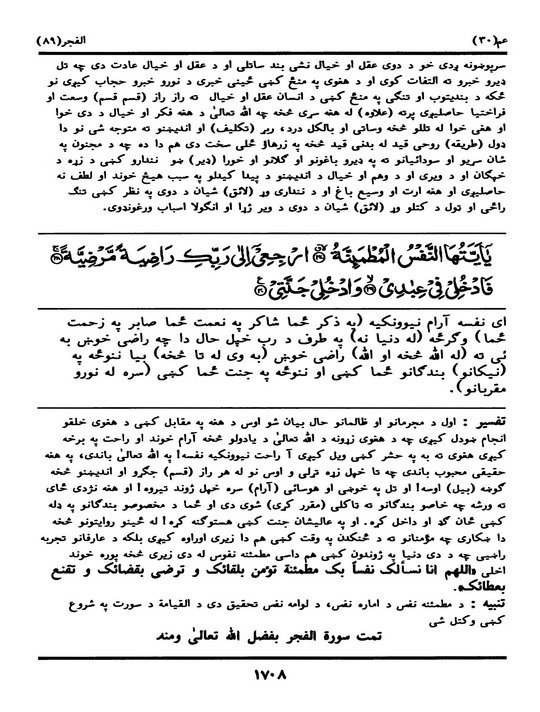 عم(۳۰) الفجر(۸۹)
سرپوښونه پدې خو د دوی عقل او خیال نشي بند ساتلی او د عقل او خیال عادت دی چه تل
ډیرو خبرو ته التفات کوی او د هغوی په منځ کښی ځینی خبری د نورو خبرو حجاب کیږی نو
ځکه د بندیتوب او تنګی په منځ کښی د انسان عقل او خیال ته راز راز (قسم قسم) وسعت او
فراختیا حاصلیږی پرته (علاوه) له هغه سړی څخه چه الله تعالیٰ د هغه فکر او خیال د دی خوا
او هغی خوا له تللو څخه وساتی او بالکل درد، رېړ (تکلیف) او اندیښنو ته متوجه شی نو دا
ډول (طریقه) روحی قید له بدنی قید څخه په زرهاؤ ځلی سخت دی هم دا ده چه د مجنون په
شان سړیو او سودائیانو ته په ډیرو باغونو او ګلانو او خورا (ډیر) ښو نندارو کښی د زړه د
خپګان او د ویری او د وهم او خیال د اندیښنو د پیدا کیدلو په سبب هیڅ خوند او لطف نه
حاصلیږی او هغه ارت او وسیع باغ او د ننداری وړ (لائق) شیان د دوی په نظر کښی تنګ
راځی او ټول د کتلو وړ (لائق) شیان د دوی د ویر ژړا او انګولا اسباب ورګرځوی.
يٰٓاَيَّتُهَا النَّفْسُ الْمُطْمَئِنَّةُ ﴿٢٧﴾ ارْجِعِيْٓ اِلٰى رَبِّكِ رَاضِيَةً مَّرْضِيَّةً ﴿٢٨﴾
فَادْخُلِيْ فِيْ عِبٰدِيْ ﴿٢٩﴾ وَادْخُلِيْ جَنَّتِيْ ﴿٣٠﴾
ای نفسه آرام نیوونکیه (په ذکر ځما شاکر په نعمت ځما صابر په زحمت
ځما) وګرځه (له دنیا نه) په طرف د رب خپل حال دا چه راضی خوښ به
ئی ته (له الله څخه او الله) راضی خوښ (به وی له تا څخه) بیا ننوځه په
(نیکانو) بندګانو ځما کښی او ننوځه په جنت ځما کښی (سره له نورو
مقربانو).
تفسیر : اول د مجرمانو او ظالمانو حال بیان شو اوس د هغه په مقابل کښی د هغوی خلقو
انجام ښودل کیږی چه د هغوی زړونه د الله تعالیٰ د یادولو څخه آرام خوند او راحت په برخه
کیږی هغوی ته به په حشر کښی ویل کیږی آ راحت نیوونکیه نفسه! په الله تعالیٰ باندی، په هغه
حقیقی محبوب باندی چه تا خپل زړه تړلی و اوس نو له هر راز (قسم) جګړو او اندیښنو څخه
ګوښه (بیل) اوسه! او تل په خوښی او هوسائی (آرام) سره خپل ژوند تیروه! او هغه نژدی ځای
ته ورشه چه خاصو بندګانو ته ټاکلی (مقرر کړی) شوی دی او ځما د مخصوصو بندګانو په ډله
کښی ځان ګډ او داخل کړه. او په عالیشان جنت کښی هستوګنه کړه! له ځینو روایتونو څخه
دا ښکاری چه مؤمنانو ته د ځنکدن په وقت کښی هم دا زیری اوراوه کیږی بلکه د عارفانو تجربه
راښیی چه د دی دنیا په ژوندون کښی هم داسی مطمئنه نفوس له دی زیری څخه پوره خوند
اخلی «اللهم انا نسألک نفساً بک مطمئنة تؤمن بلقائک و ترضی بقضائک و تقنع
بعطائک».
تنبیه : د مطمئنه نفس د اماره نفس، د لوامه نفس تحقیق دی د القیامة د سورت په شروع
کښی وکتل شی
تمت سورة الفجر بفضل الله تعالیٰ ومنه
۱۷۰۸